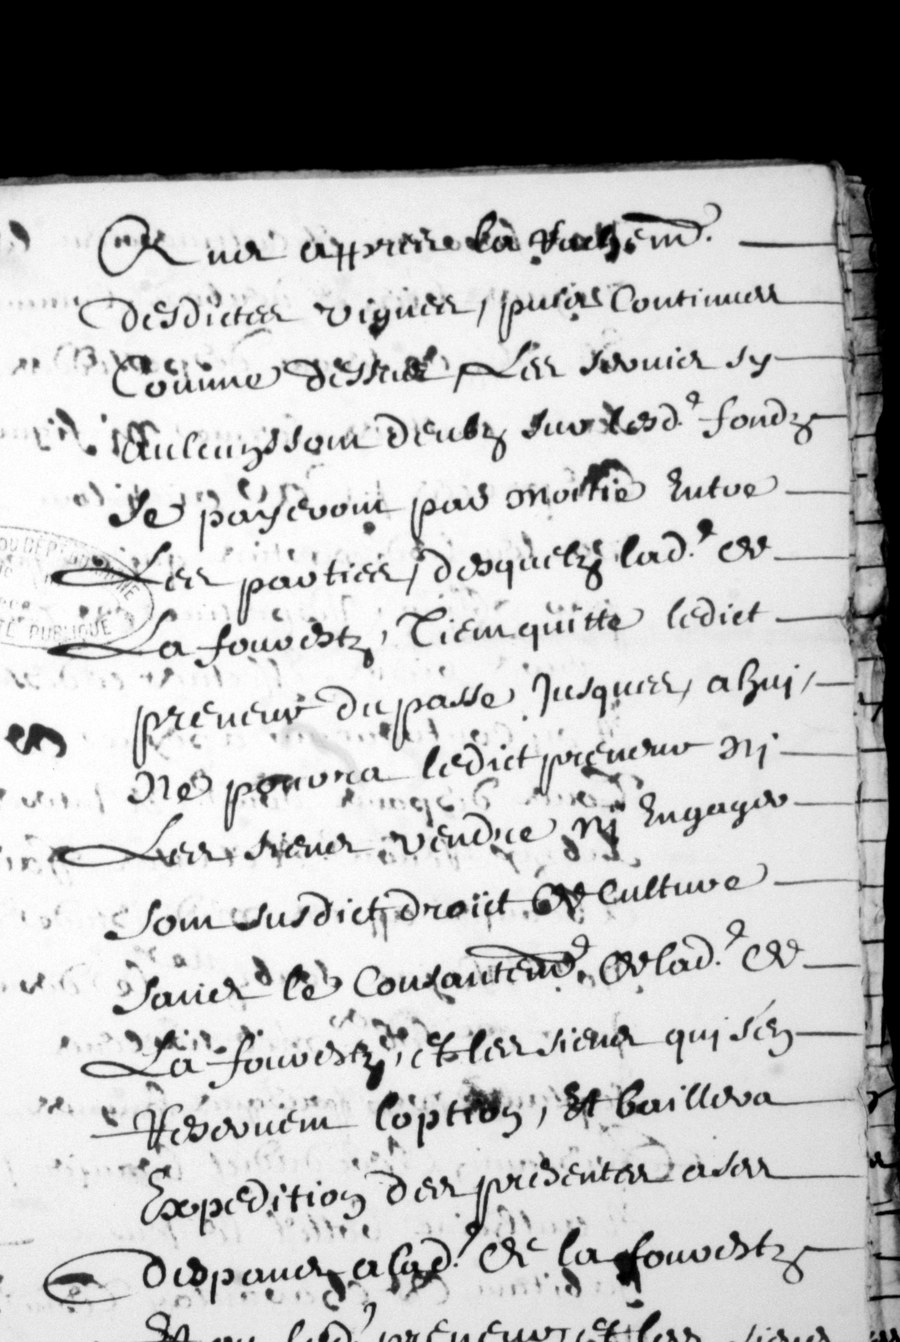 apprès la
desdictes vignes, puis continuer
Comme dessus, Les servis sy
Aulcungs sont deubz sur lesd.^e fondz
Se payeront par moitie Entre
Les parties, desquelz lad.^e de
La forrestz, Tient quitte ledict
preneur du passe Jusques, a huj,
Ne pourra ledict preneur nj
Les siens vendre nj Engager
Son susdict droict de Culture
Sans le Consantem.^t de lad.^e de
La forrestz, et les siens qui s'en
Reservent l'option, Et baillera
Expedition des presentes a ses
Despans a lad.^e de la forrestz
preneur et les siens
DU DÉP
PUBLIQUE